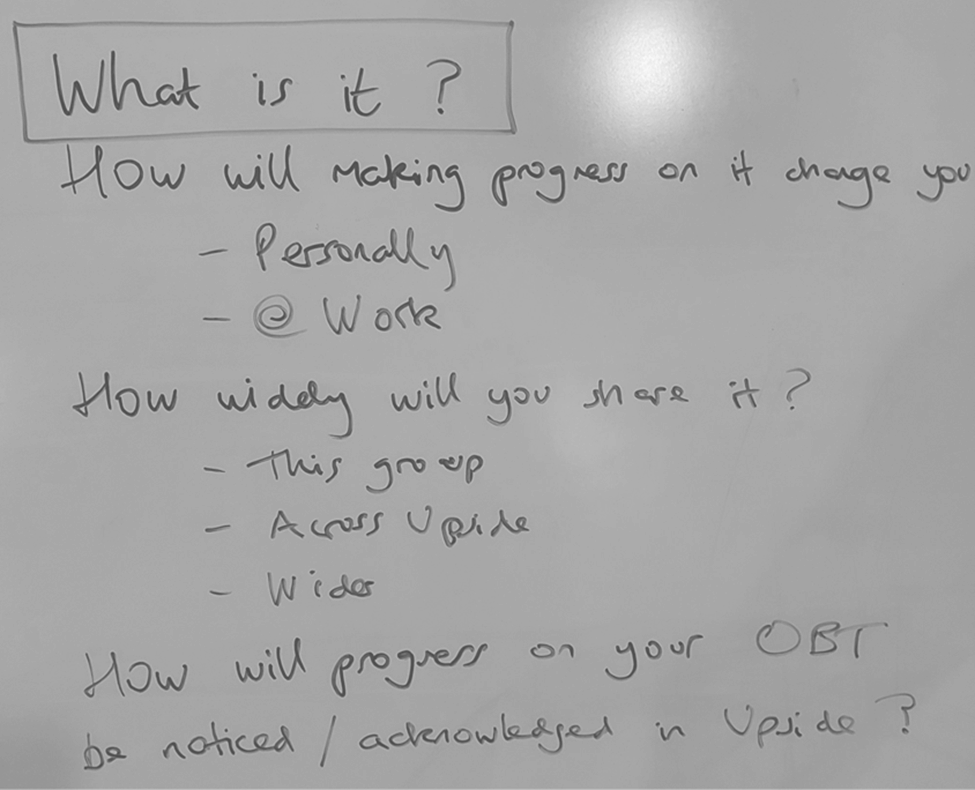 What is it ?
How will making progress on it change you
- Personally
- @ Work
How widely will you share it ?
- This group
- Across Upside
- Wider
How will progress on your OBT
be noticed / acknowledged in Upside ?